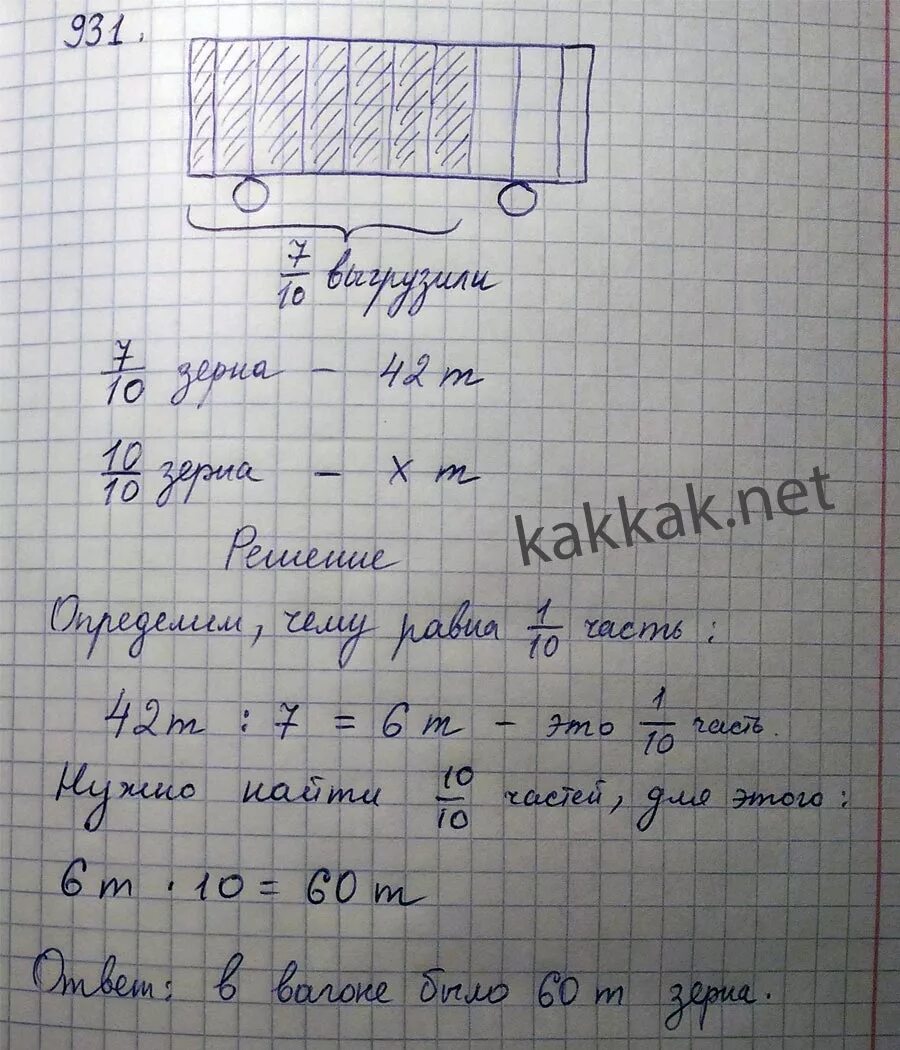 931.
7/10 выгрузили
7/10 зерна - 42 т
10/10 зерна - x т
kakkak.net
Решение
Определим, чему равна 1/10 часть:
42 т : 7 = 6 т - это 1/10 часть.
Нужно найти 10/10 частей, для этого:
6 т · 10 = 60 т
Ответ: в вагоне было 60 т зерна.